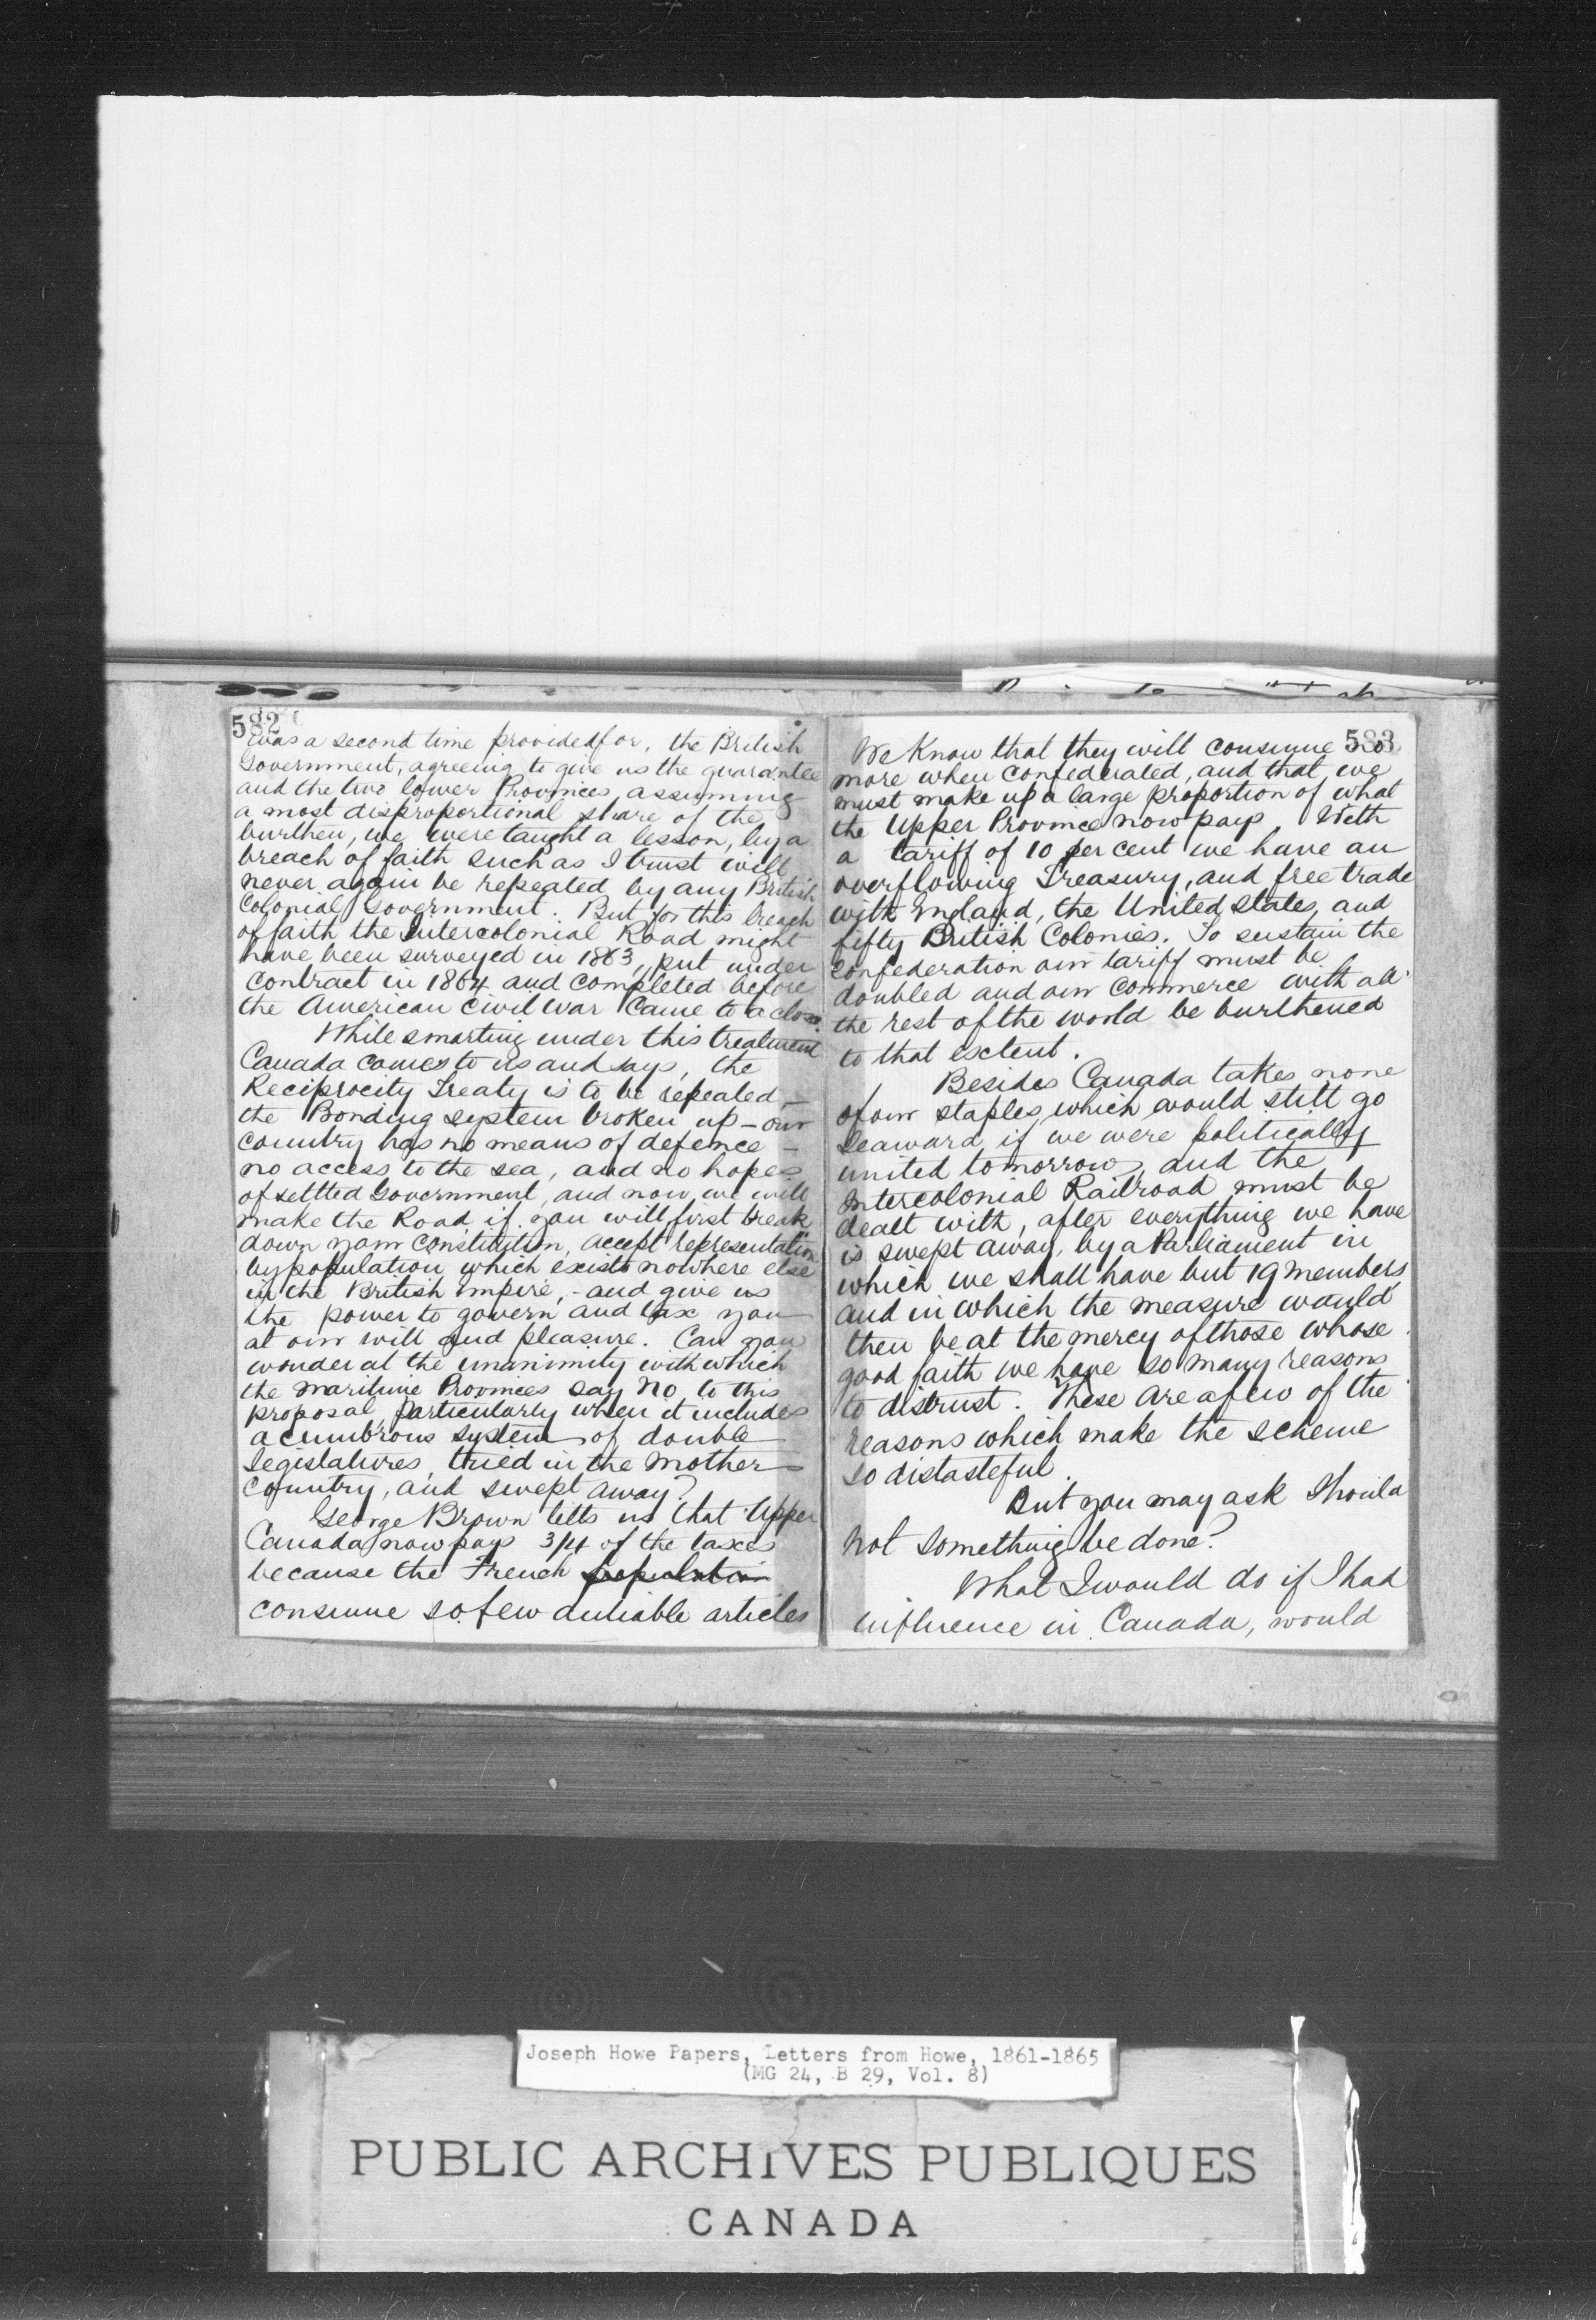 582
was a second time provided for, the British
Government, agreeing to give us the guarantee
and the two lower Provinces, assuming
a most disproportional share of the
burthen, we were taught a lesson, by a
breach of faith such as I trust will
never again be repeated by any British
Colonial Government. But for this breach
of faith the Intercolonial Road might
have been surveyed in 1863, put under
contract in 1864 and completed before
the American Civil War Came to a close.
While smarting under this treatment
Canada comes to us and says, the
Reciprocity Treaty is to be repealed,—
the Bonding system broken up – our
country has no means of defence –
no access to the sea, and no hopes
of settled Government, and now we will
make the Road, if you will first break
down your Constitution, accept representation
by population which exists nowhere else
in the British Empire, – and give us
the power to govern and tax you
at our will and pleasure. Can you
wonder at the unanimity with which
the Maritime Provinces say No, to this
proposal, particularly when it includes
a cumbrous system of double
Legislatures, tried in the Mother
Country, and swept away?
George Brown tells us that Upper
Canada now pays 3/4 of the taxes
because the French population
consume so few dutiable articles
583
We Know that they will consume no
more when confederated, and that we
must make up a large proportion of what
the Upper Province now pays. With
a tariff of 10 per cent we have an
overflowing Treasury, and free trade
with England, the United States, and
fifty British Colonies. To sustain the
confederation our tariff must be
doubled and our Commerce with all
the rest of the world be burthened
to that extent.
Besides Canada takes none
of our staples, which would still go
Seaward, if we were politically
united tomorrow, and the
Intercolonial Railroad must be
dealt with, after everything we have
is swept away, by a Parliament in
which we shall have but 19 members
and in which the measure would
then be at the mercy of those whose
good faith we have so many reasons
to distrust. These are a few of the
reasons which make the scheme
so distasteful.
But you may ask Should
not something be done?
What I would do if I had
influence in Canada, would
Joseph Howe Papers, Letters from Howe, 1861-1865
(MG 24, B 29, Vol. 8)
PUBLIC ARCHIVES PUBLIQUES
CANADA